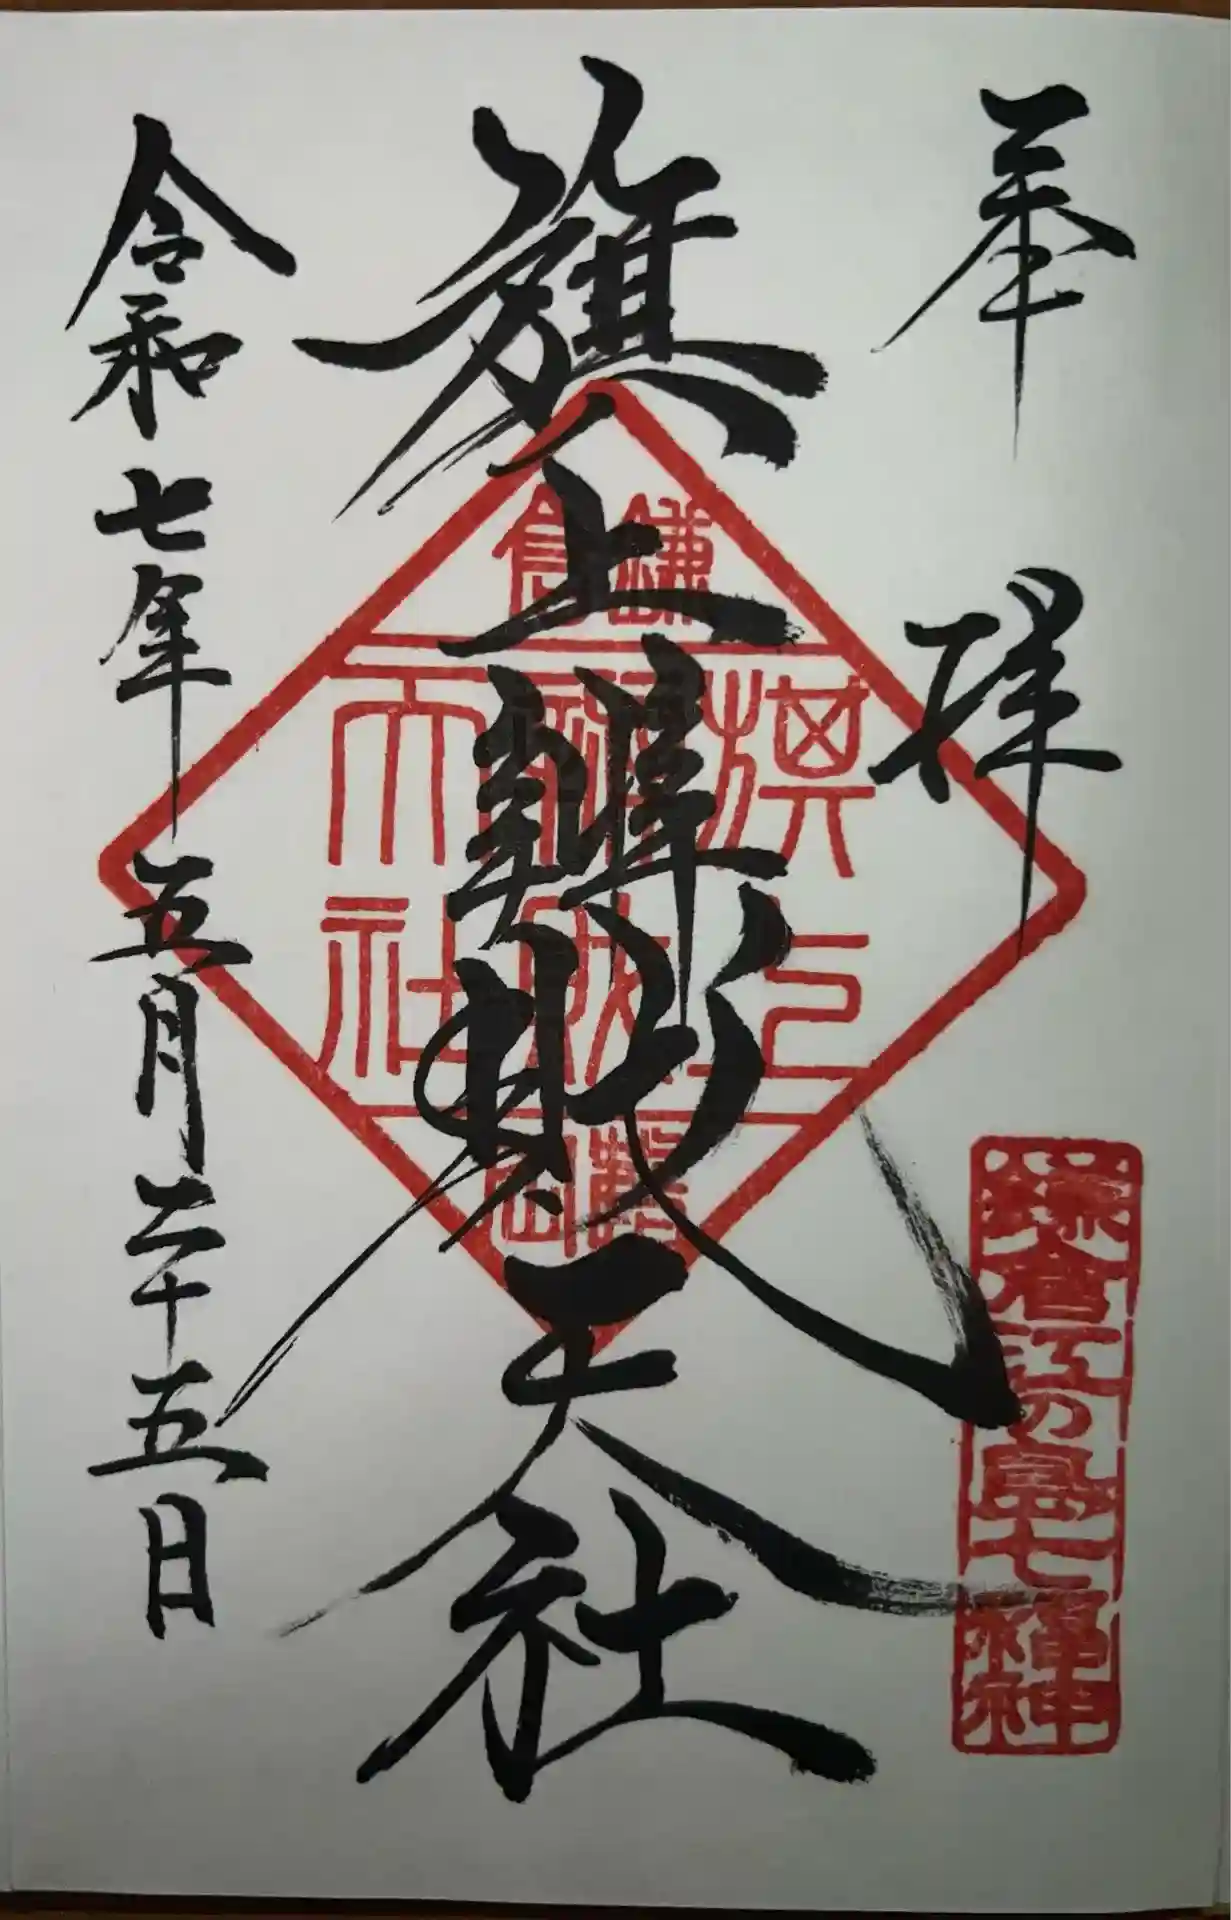 奉拝
鎌倉江の島七福神
旗上辨財天社
鎌倉
旗上
辨財
天社
鶴岡
令和七年五月二十五日